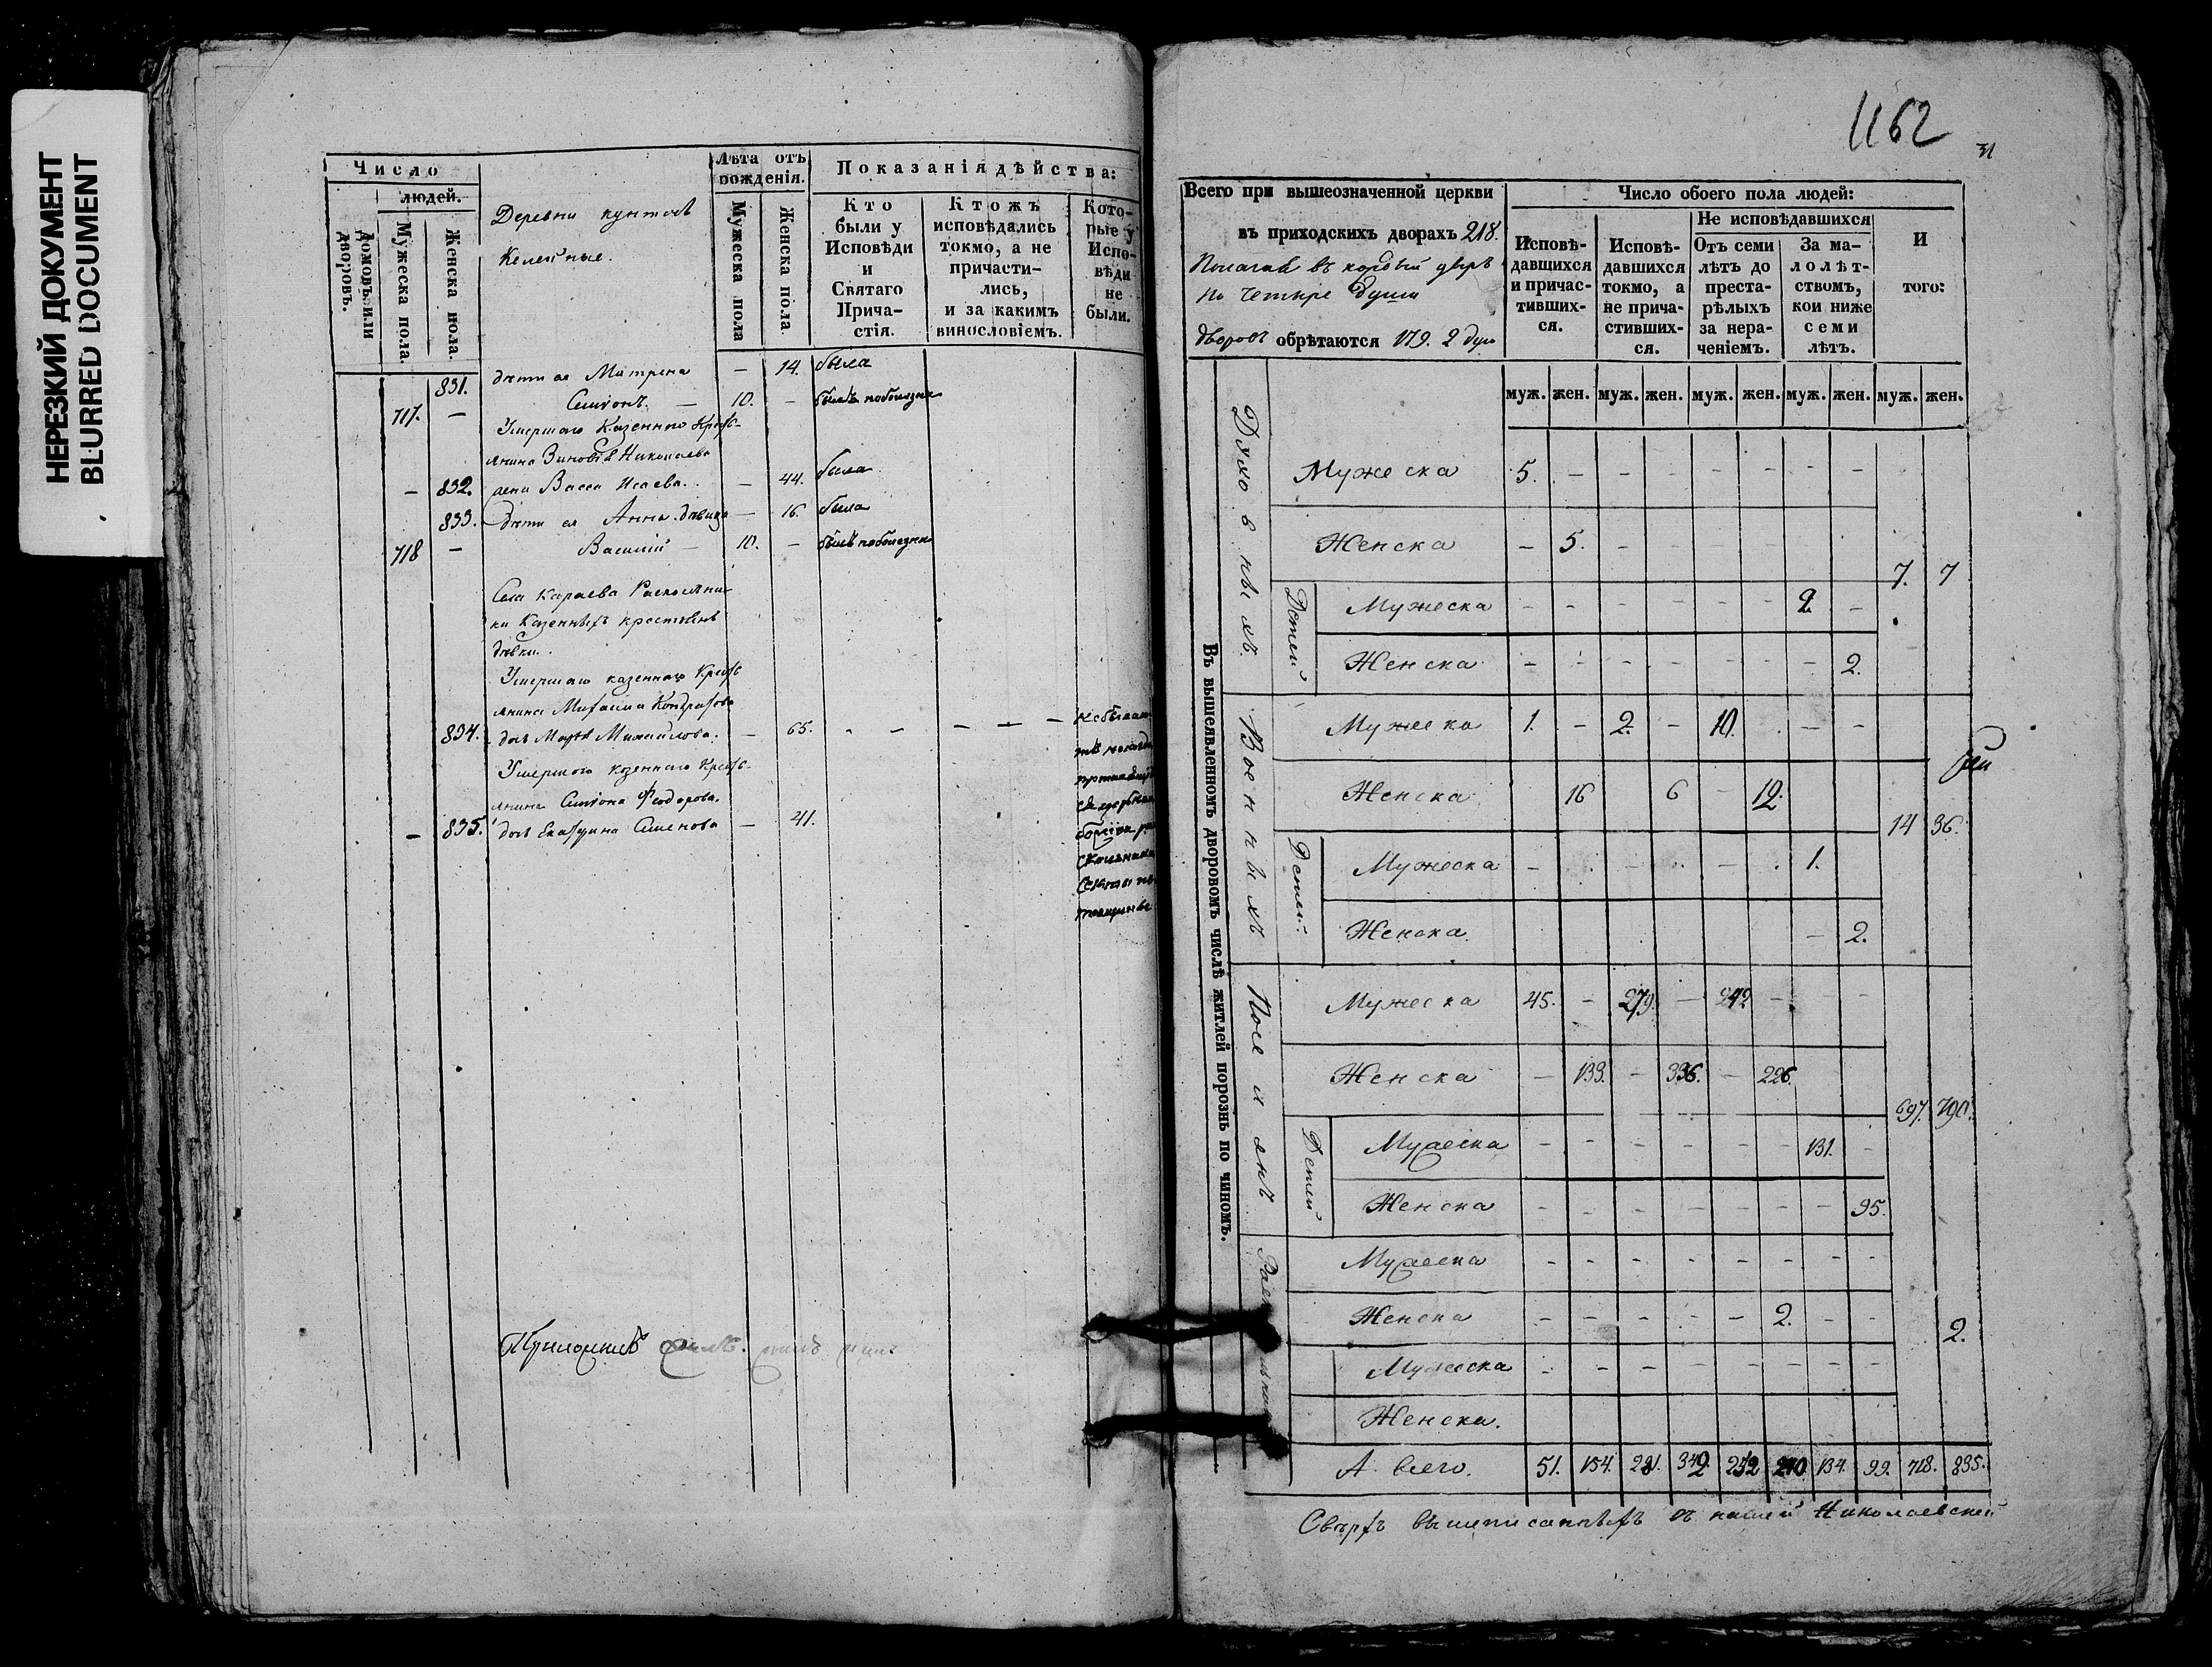 НЕРЕЗКИЙ ДОКУМЕНТ
BLURRED DOCUMENT
Число
людей.
домовъ или дворовъ.
Мужеска пола.
Женска пола.
Деревни
Келейные.
Лѣта отъ рожденія.
Мужеска пола
Женска пола.
Показанія дѣйства:
Кто были у Исповѣди и Святаго Причастія.
Ктожъ исповѣдались токмо, а не причастились, и за какимъ винословіемъ.
Которые у Исповѣди не были.
831. дѣти ея Матрена — 14. была
717. — Семіонъ — 10. —
Умершаго Казеннаго Крес-
янина Николаева
— 832. жена Васса Исаева. — 44. была
833. дѣти ея Анна девица — 16. была
718 — Василій — 10. —
Села Караева Расколни-
ки Казенныхъ крестьянъ
дѣвки.
Умершаго казеннаго Крес-
янина Михаила Кондратова
834. дочь Михайлова. — 65. - - - - -
Умершаго казеннаго Крес-
янина Семіона Феодорова.
— 835. дочь Екатерина Семенова — 41.
1162
Всего при вышеозначенной церкви
въ приходскихъ дворахъ 218.
Полагая въ каждый дворъ
по четыре души
дворовъ обрѣтаются 179. 2 душ
Число обоего пола людей:
Исповѣдавшихся и причастившихся.
Исповѣдавшихся токмо, а не причастившихся.
Не исповѣдавшихся
Отъ семи лѣтъ до престарѣлыхъ за нерачéніемъ.
За малолѣтствомъ, кои ниже семи лѣтъ.
И того:
муж. жен. муж. жен. муж. жен. муж. жен. муж. жен.
Въ вышеявленномъ дворовомъ числѣ житлей порознь по чиномъ.
Духовныхъ
Мужеска 5. - - - - - - -
Женска - 5. - - - - - -
7. 7
Детей
Мужеска - - - - - - 2. -
Женска - - - - - - - 2.
Военныхъ
Мужеска 1. - 2. - 10. - - -
Женска 16 6 - 12.
14 36.
Детей
Мужеска 1.
Женска 2.
Поселянъ
Мужеска 45. - 279. - 242 - - -
Женска - 133. - 336. - 226.
697. 790.
Детей
Мужеска - - - - - - 131. -
Женска - - - - - - - 95.
Мужеска - - - - - - - -
Женска - - - - - 2. - -
2.
Мужеска - - - - - - - -
Женска.
А всего. 51. 154. 281. 342. 252 240. 134. 99. 718. 835.
Сверхъ вышеписанныхъ въ нашей Николаевской